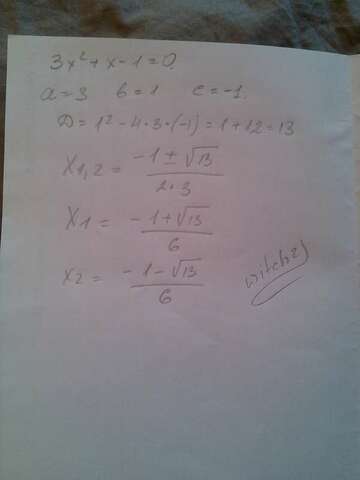 3x²+x-1=0.
a=3 b=1 c=-1.
D=1²-4·3·(-1)=1+12=13
x1,2 = (-1±√13)/(2·3)
x1 = (-1+√13)/6
x2 = (-1-√13)/6